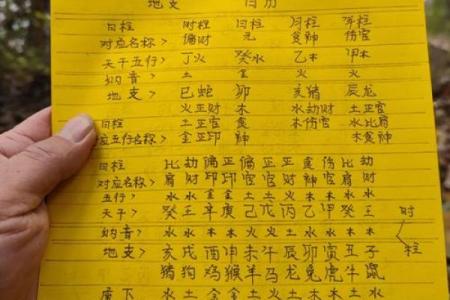 地支 日历
日柱 时柱 日柱 月柱 年柱
对应名称> 偏财 元 食神 伤官
天干五行> 丁火 癸水 乙木 甲木
纳音> 土 金 火 火
地支> 巳蛇 卯 亥猪 辰龙
火正财 木 水劫财 土正官
日柱 土正官 食 木伤官 水比肩
应五行名称> 金正印 神 木食神
日柱 比 劫 偏 正 偏 正 正 食 伤 比 劫
对应名称> 肩 财 印 印 官 官 财 神 官 肩 财
五行> 水 水 金 金 土 土 火 木 木 水 水
天干> 癸 壬 辛 庚 己 戊 丙 乙 甲 癸 壬 时
纳音> 水 水 木 木 火 火 土 火 火 木 木
地支> 亥 戌 酉 申 未 午 辰 卯 寅 丑 子 柱
猪 狗 鸡 猴 羊 马 龙 兔 虎 牛 鼠
水 土 金 金 土 火 土 木 木 土 水